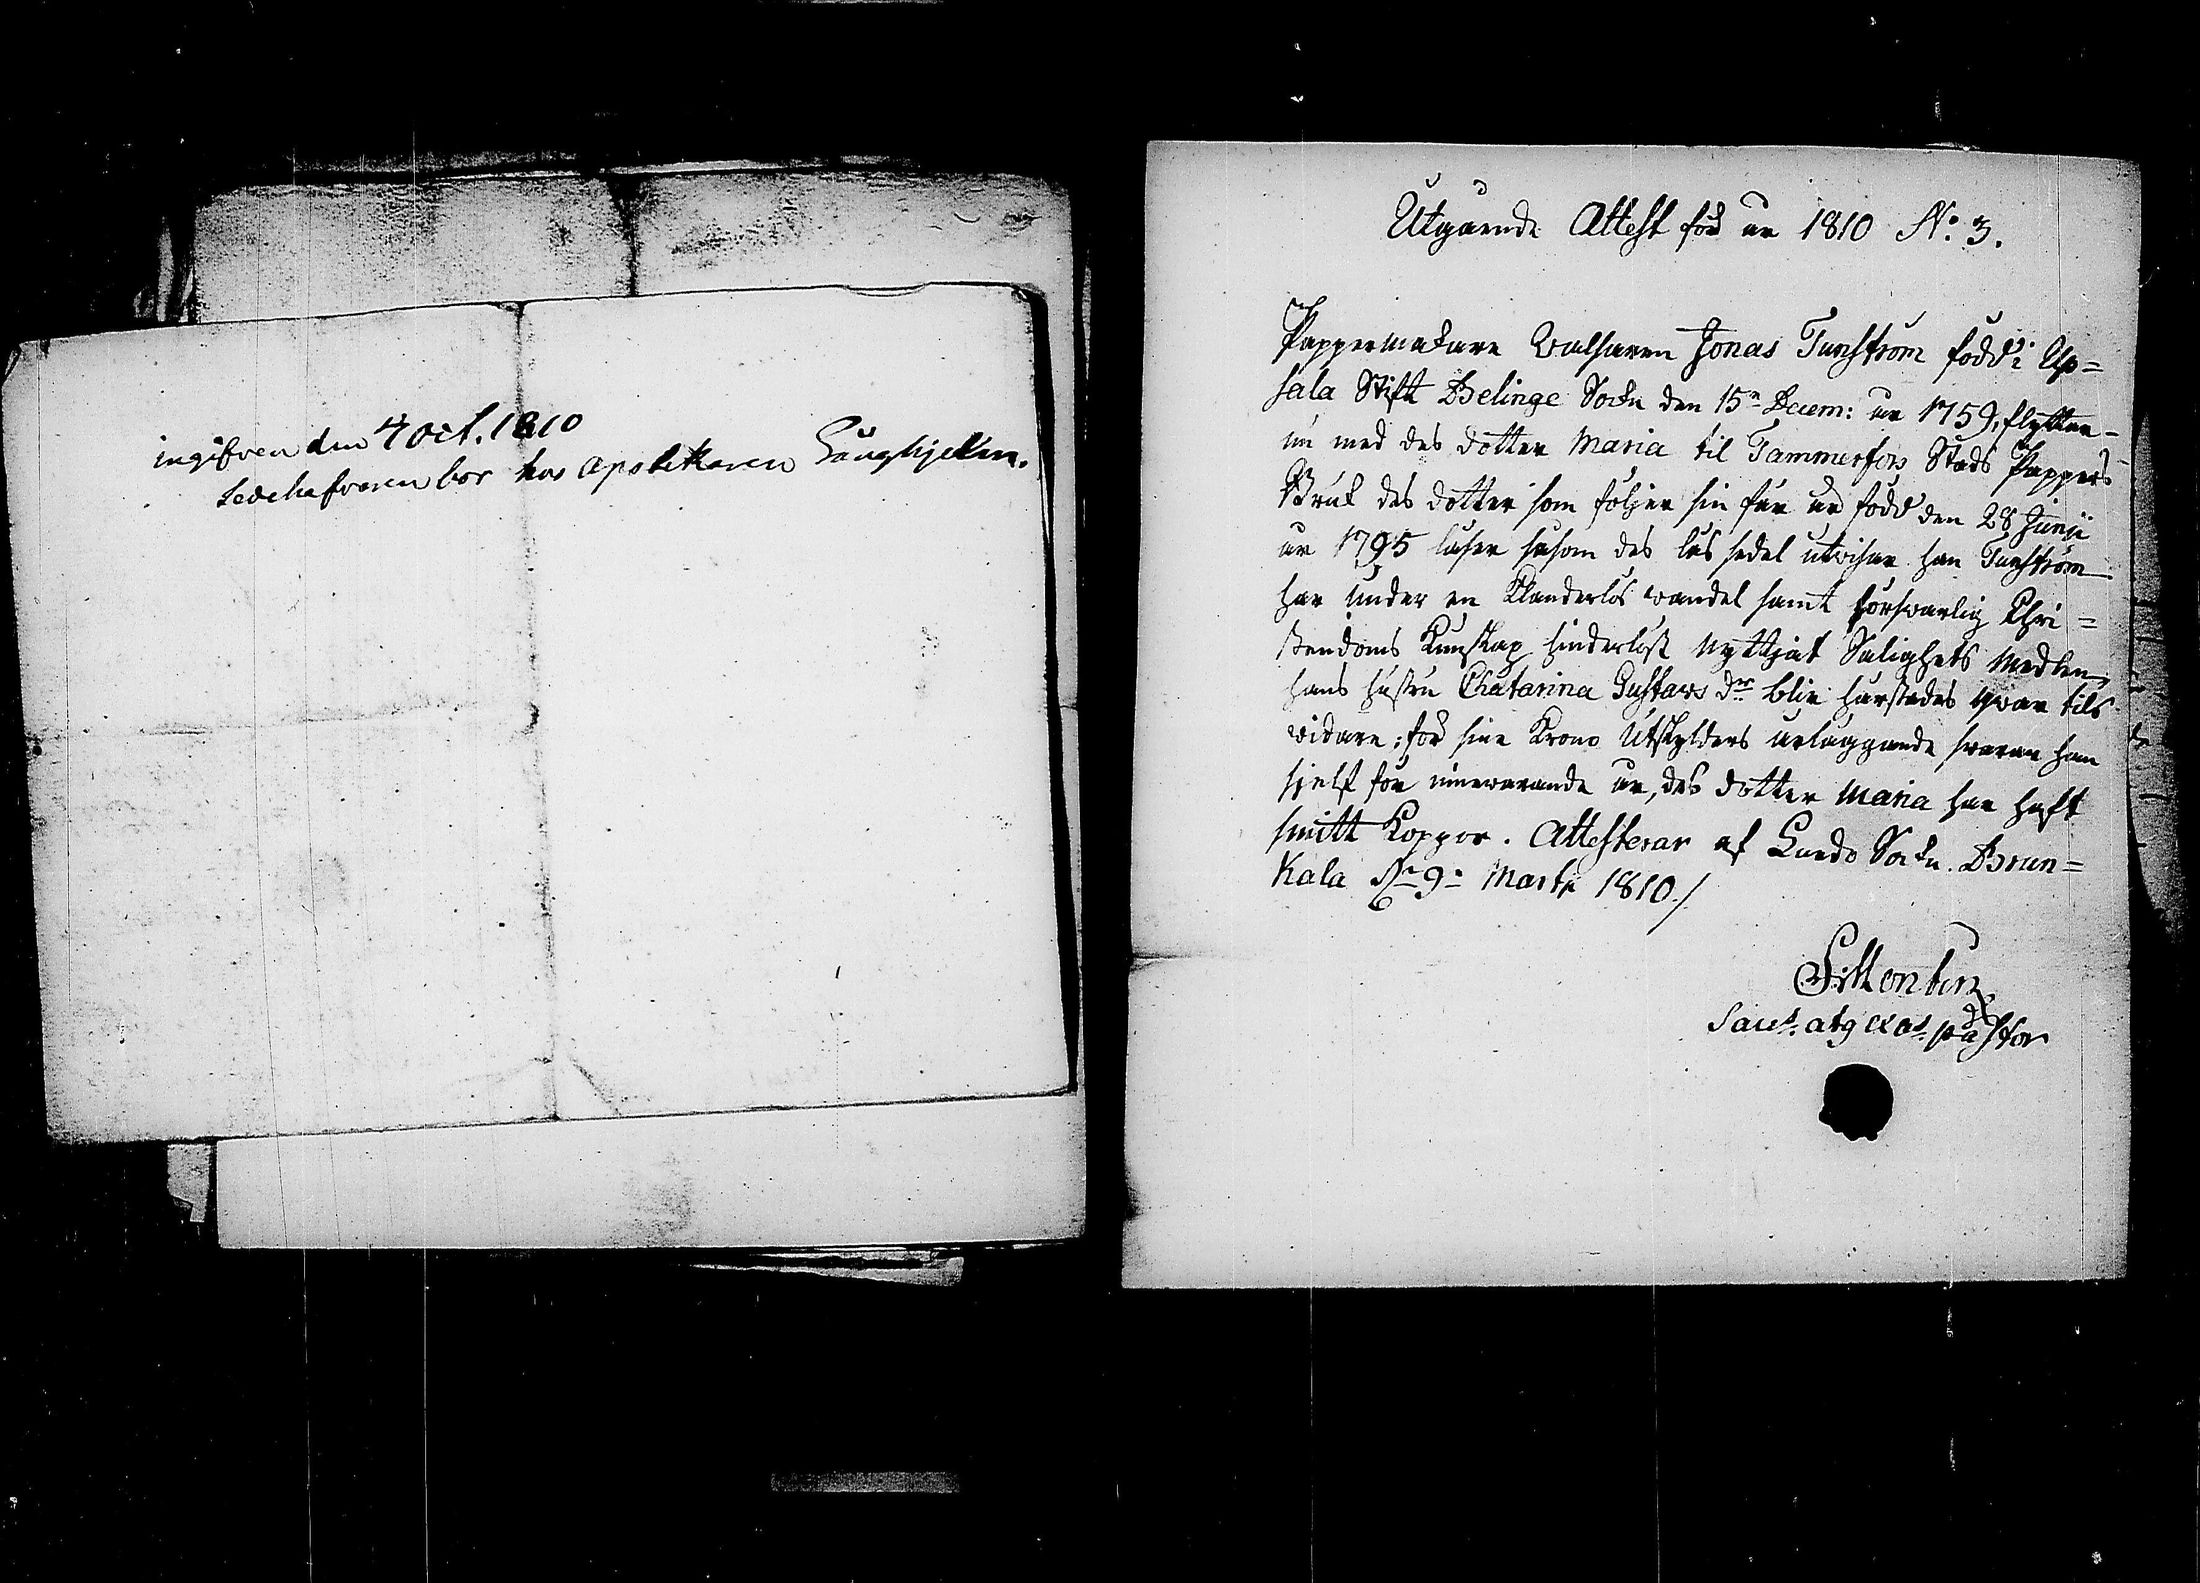 ingifven den 4 Oct. 1810
Sedelhafvaren bor hos Apotekaren
Utgående Attest för år 1810 No. 3.
Pappermakare Jonas Tunström född i Up=
sala Stift Belinge Sockn den 15n Decem: år 1759, flyttar
nu med des dotter Maria til Tammerfors Stads Pappers
Bruk des dotter som följer sin far är född den 28 Junii
år 1795 läser såsom des läs sedel utvisar han Tunström
har under en Klanderlös wandel samt försvarlig Chri=
stendoms Kunskap hinderlöst nyttjat Salighets Medlen
hans hustru Chatarina Gustavs dr blir härstädes qvar tils
widare; för sine Krono Utskylders erläggande swarar han
sjelf för innewarande år, des dotter Maria har haft
smitt Koppor. Attesterar af Sockn. Brun=
kala d. 9. Martii 1810./
pastor